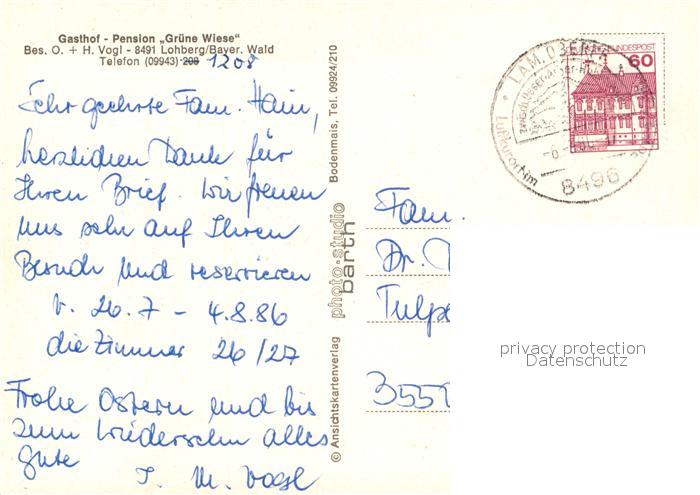 Gasthof - Pension „Grüne Wiese"
Bes. O. + H. Vogl - 8491 Lohberg/Bayer. Wald
Telefon (09943) 208 1208
Sehr geehrte Fam. Hain,
herzlichen Dank für
Ihren Brief. Wir freuen
uns sehr auf Ihren
Besuch und reservieren
v. 26.7 - 4.8.86
die Zimmer 26/27
Frohe Ostern und bis
zum Wiedersehn alles
gute
J. M. Vogl
© Ansichtskartenverlag photo-studio barth Bodenmais, Tel. 09924/210
LAM, OBERPF
Luftkurort im
8496
BUNDESPOST
60
Fam.
Dr.
Tulpe
3551
privacy protection
Datenschutz